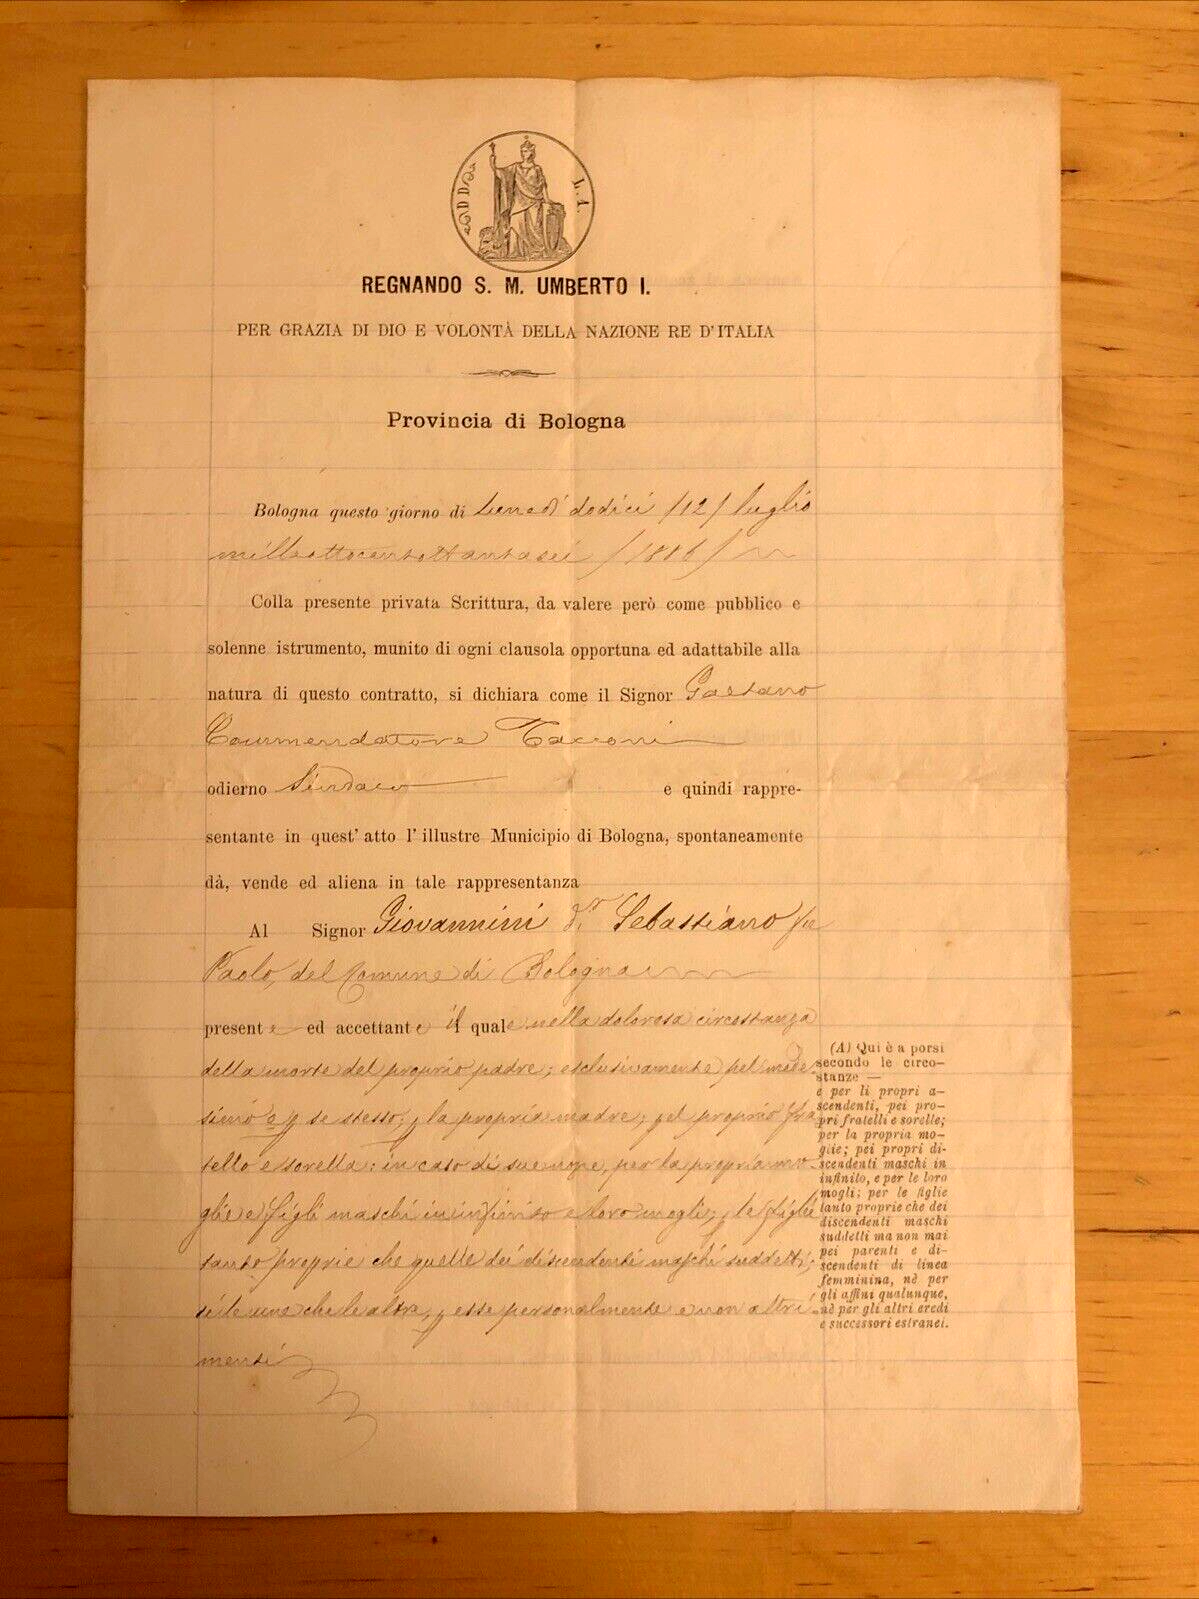 L. 1.
REGNANDO S. M. UMBERTO I.
PER GRAZIA DI DIO E VOLONTÀ DELLA NAZIONE RE D'ITALIA
Provincia di Bologna
Bologna questo giorno di Lunedì dodici /12/ luglio
milleottocentottantasei /1886/
Colla presente privata Scrittura, da valere però come pubblico e
solenne istrumento, munito di ogni clausola opportuna ed adattabile alla
natura di questo contratto, si dichiara come il Signor Gaetano
Commendatore Tacconi
odierno Sindaco e quindi rappre-
sentante in quest' atto l' illustre Municipio di Bologna, spontaneamente
dà, vende ed aliena in tale rappresentanza
Al Signor Giovannini Dr Sebastiano fu
Paolo, del Comune di Bologna
presente ed accettante il quale nella dolorosa circostanza
della morte del proprio padre; esclusivamente pel mede-
simo e p se stesso; p la propria madre; pel proprio fra
tello e sorella: in caso di sue nozze, per la propria mo-
glie e figli maschi in infinito e loro mogli; p le figlie
tanto proprie che quelle dei discendenti maschi suddetti;
sì le une che le altre, p esse personalmente e non altri-
menti
(A) Qui è a porsi
secondo le circo-
stanze —
e per li propri a-
scendenti, pei pro-
pri fratelli e sorelle;
per la propria mo-
glie; pei propri di-
scendenti maschi in
infinito, e per le loro
mogli; per le figlie
tanto proprie che dei
discendenti maschi
suddetti ma non mai
pei parenti e di-
scendenti di linea
femminina, nè per
gli affini qualunque,
nè per gli altri eredi
e successori estranei.